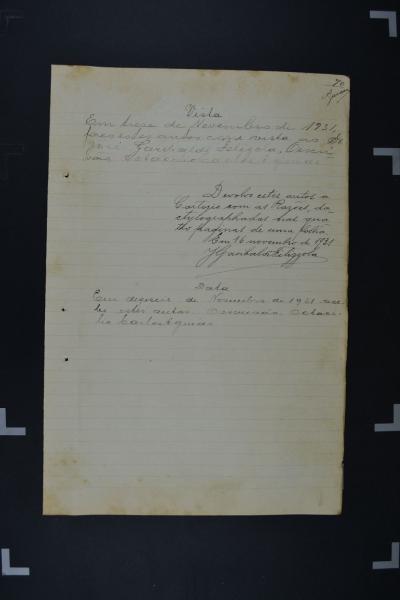 70
Vista
Em treze de Novembro de 1931,
faço estes autos com vista ao Dr.
José Garibaldi
Octacilio Carlos
Devolvo estes autos a
Cartorio com as Razões, da-
ctylographadas nas qua-
tro paginas de uma folha
Em 16 novembro de 1931
JGaribaldi Felizzola
Data
Em deseseis de Novembro de 1931 rece-
bi estes autos. O escrivão Octaci-
lio Carlos